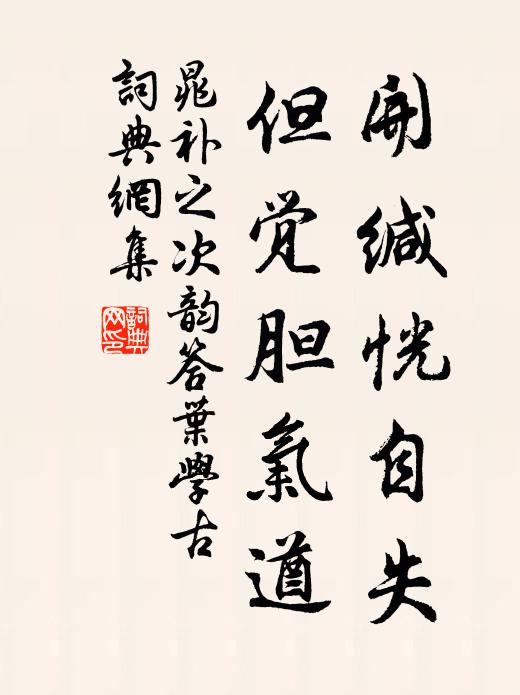 開缄恍自失
但觉胆氣遒
晁补之次韵答葉學古
詞典網集
詞典網印